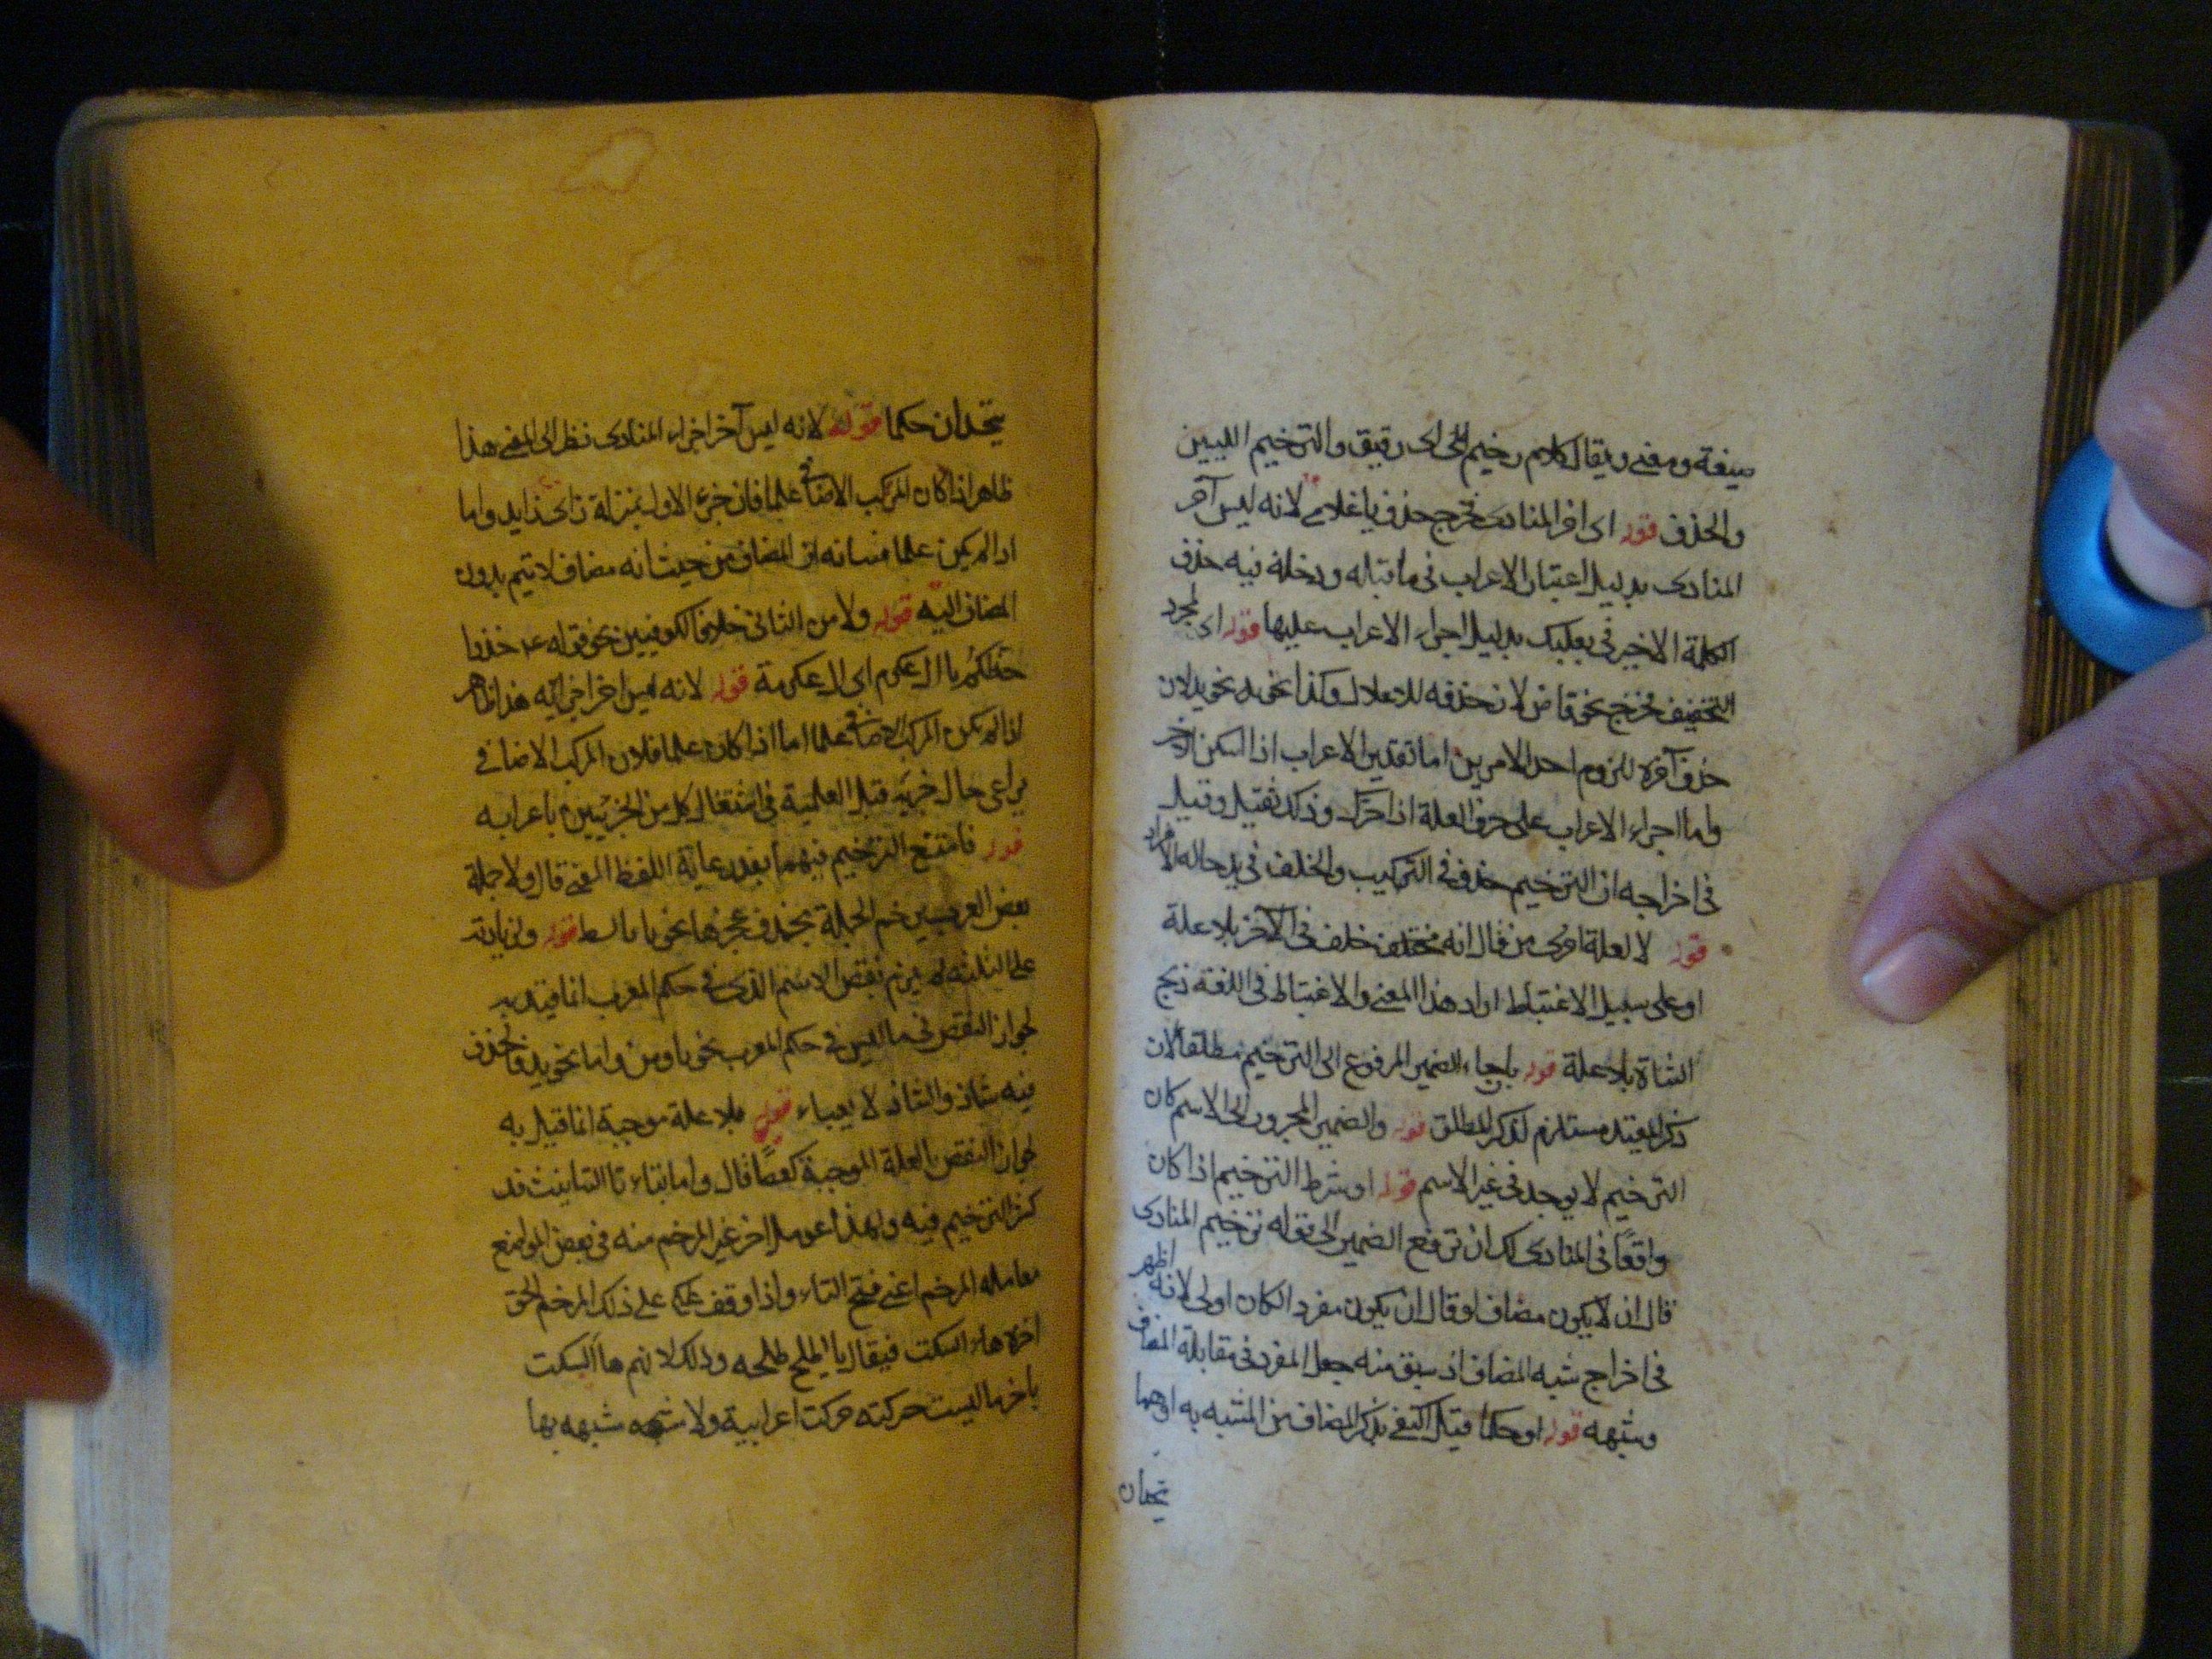 صيغة ومعنى ويقال كلام رخيم اى رقيق والترخيم اللين
والحذف قوله اى اخر المنادى فخرج حذف يا غلامى لانه ليس آخر
المنادى بدليل اعتبار الاعراب فى ما قبله ودخل فيه حذف
الكلمة الاخير فى بعلبك بدليل اجراء الاعراب عليها قوله اى لمجرد
التخفيف فخرج نحو قاض لان حذفه للاعلال وكذا نحو يد نحو يد لان
حذف آخره للزوم احد الامرين اما تقدير الاعراب اذا اسكن الاخر
واما اجراء الاعراب على حرف العلة اذا حرك وذلك ثقيل وقيل
فى اخراجه ان الترخيم حذف فى التركيب والخلف فى يد حاله الافراد
قوله لا لعلة اولى من قال انه خلف فى الآخر بلا علة
او على سبيل الاغتباط اراد هذا المعنى والاغتباط فى اللغة ذبح
الشاة بلا علة قوله بارجاع الضمير المرفوع الى الترخيم مطلقا لان
ذكر المقيد مستلزم لذكر المطلق قوله والضمير المجرور الى الاسم كان
الترخيم لا يوجد فى غير الاسم قوله او شرط الترخيم اذا كان
واقعًا فى المنادى لك ان ترفع الضمير الى قوله ترخيم المنادى
قال ان لا يكون مضافا لو قال ان يكون مفردا لكان اولى لانه اظهر
فى اخراج شبه المضاف اذ سبق منه جعل المفرد فى مقابلة المضاف
وشبهه قوله او حكما قيل اكتفى بذكر المضاف من المشبه به اذ هما
يتحدان
يتحدان حكما قوله لانه ليس آخر اجزاء المنادى نظرا الى المعنى هذا
ظاهر اذا كان المركب الاضافى علما فان جزء الاول بمنزلة زاى زايد واما
اذا لم يكن علما فانه ان المضاف من حيث انه مضاف لا يتم بدون
المضاف اليه قوله ولا من الثانى خلافا للكوفيين نحو قوله ع خذوا
حظكم يا ال عكرم اى ال عكرمة قوله لانه ليس اخر اجزائه هذا ظاهر
اذا لم يكن المركب الاضافى علما اما اذا كان علما فلان المركب الاضافى
يراعى حال جزئيه قبل العلمية فى اشتغال كل من الجزئيين باعرابه
قوله فامتنع الترخيم فيهما بعد رعاية اللفظ المعنى قال ولا جملة
بعض العرب يرخم الجملة بحذف عجزها نحو يا تابط قوله وزيادته
على الثلثة لم يلزم نقص الاسم الذى فى حكم المعرب انما قيد به
لجواز النقص فى ما ليس فى حكم المعرب نحو ما ومن واما نحو يد فالحذف
فيه شاذ والشاذ لا يعبأ قوله بلا علة موجبة انما قيل به
لجواز النقص بالعلة الموجبة كعصًا قال واما بتاء تا التانيث قد
كثر الترخيم فيه ولهذا عومل اخر غير المرخم منه فى بعض المواضع
معاملة المرخم اعنى فتح التاء واذا وقف على ذلك المرخم الحق
اخره هاء السكت فيقال يا طلحه وذلك لانهم هاء السكت
باخر ما ليست حركته حركت اعرابية ولا شبهه بها